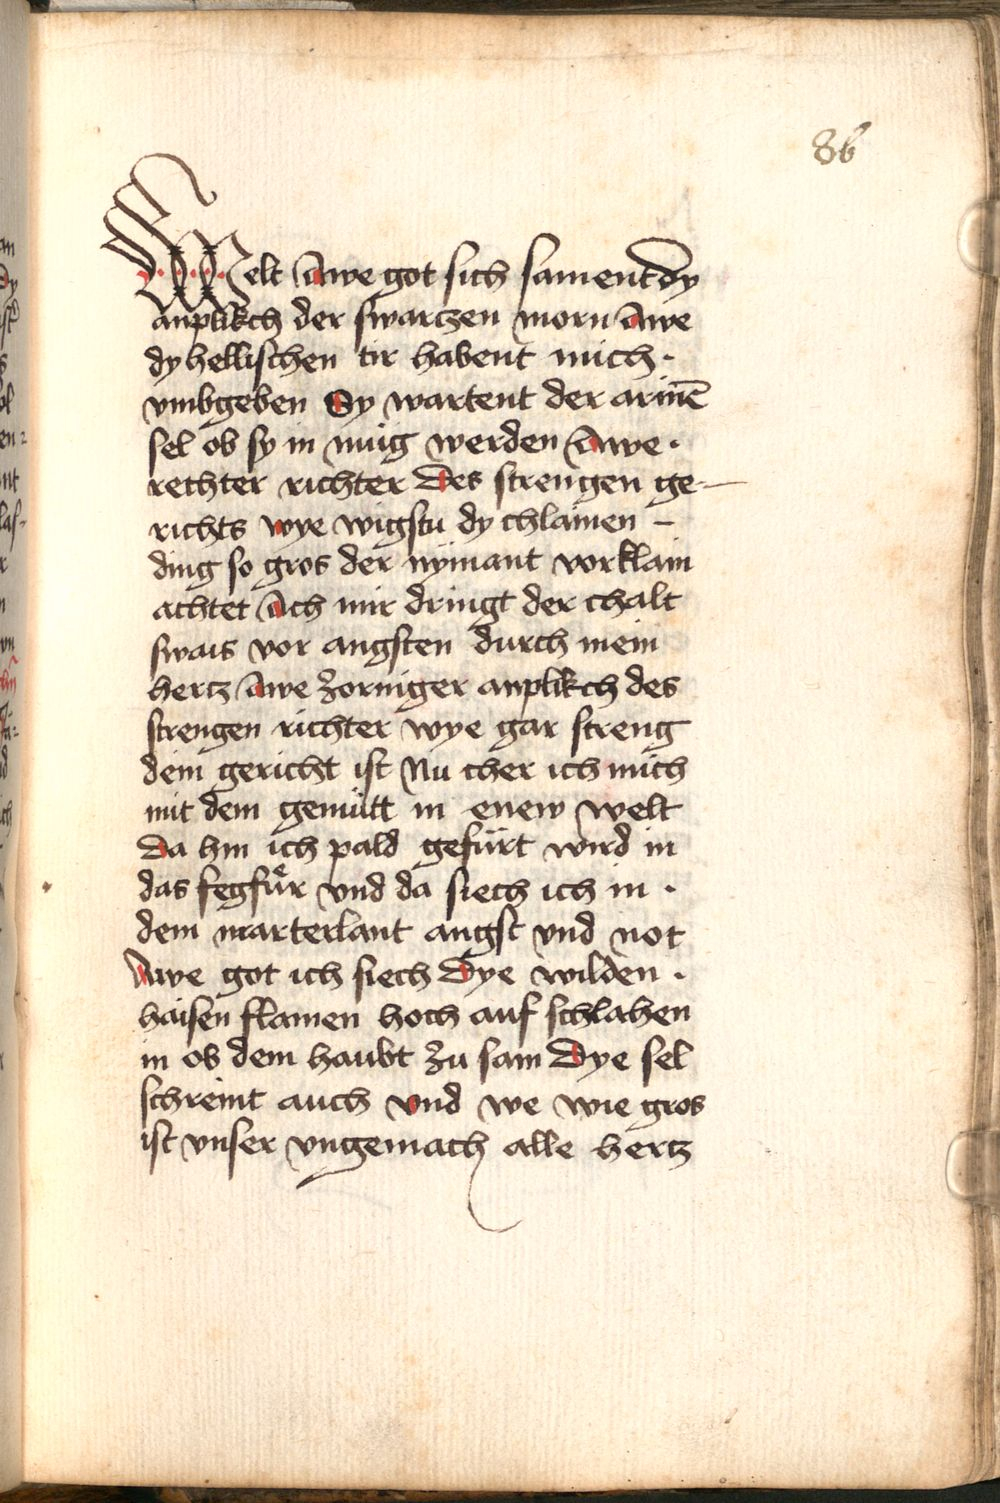 86
Welt Awe got sich sament dy
anplikch der swarczen morn Awe
dy hellischen tir habent mich ·
vmbgeben Sy wartent der armē
sel ob sy in mug werden Awe ·
rechter richter Des strengen ge-
richts wye wigstu dy chlainen -
ding so gros der nymant vor klain
achtet Ach mir dringt der chalt
swais vor angsten durch mein
hertz Awe zorniger anplikch des
strengen richter wye gar streng
dein gericht ist Nu cher ich mich
mit dem gemütt in enew welt
Da hin ich pald gefürt wird in
das fegfuͤr vnd da siech ich in ·
dem marterlant angst vnd not
Awe got ich siech Dye wilden ·
haisen flamen hoch auf schlahen
in ob dem haubt zu sam Dye sel
schreint auch vnd we wie gros
ist vnser vngemach alle hertz